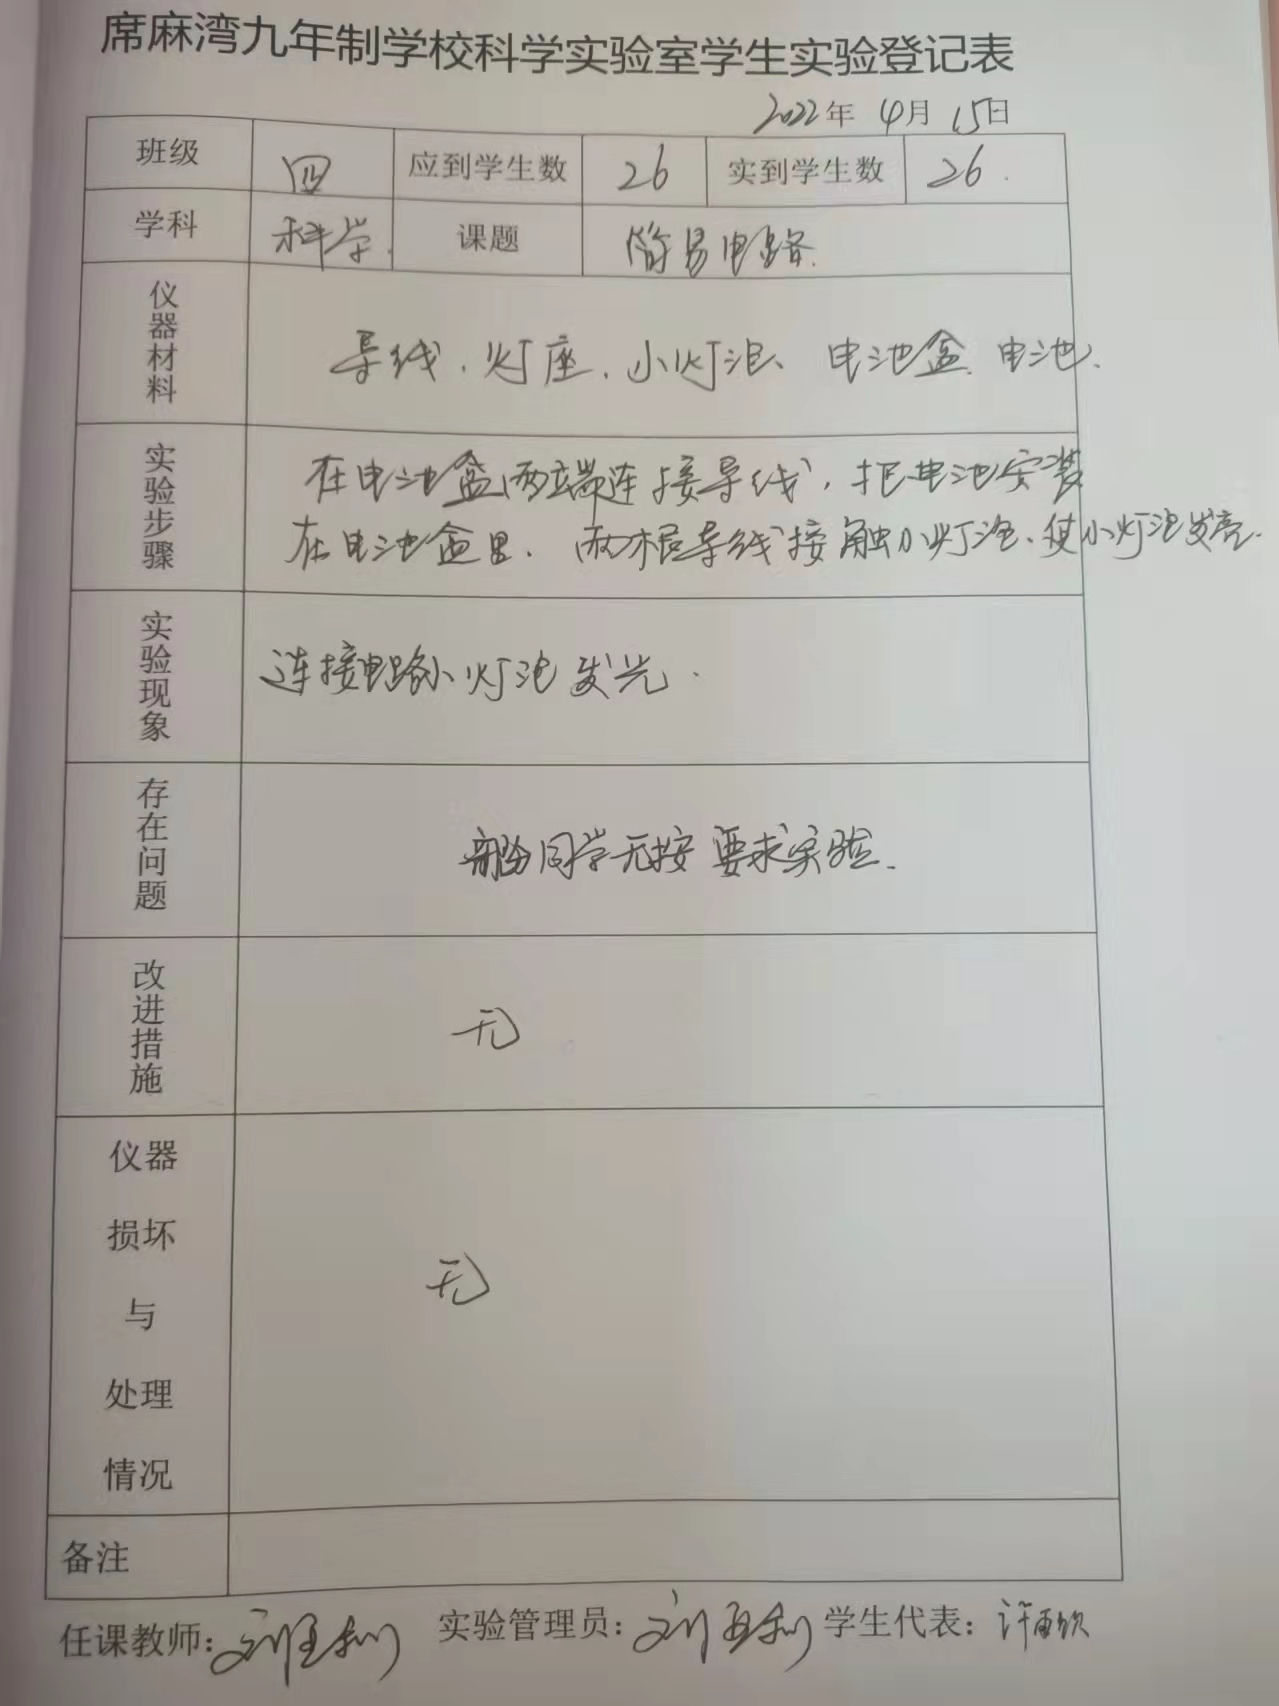 席麻湾九年制学校科学实验室学生实验登记表
2022年 4月 15日
班级 四 应到学生数 26 实到学生数 26.
学科 科学. 课题 简易电路.
仪器材料 导线、灯座、小灯泡、电池盒、电池.
实验步骤 在电池盒两端连接导线，把电池安装
在电池盒里、两根导线接触小灯泡、使小灯泡发亮.
实验现象 连接电路小灯泡发光.
存在问题 部分同学无按要求实验.
改进措施 无
仪器
损坏
与
处理
情况
无
备注
任课教师: 实验管理员: 学生代表: 许